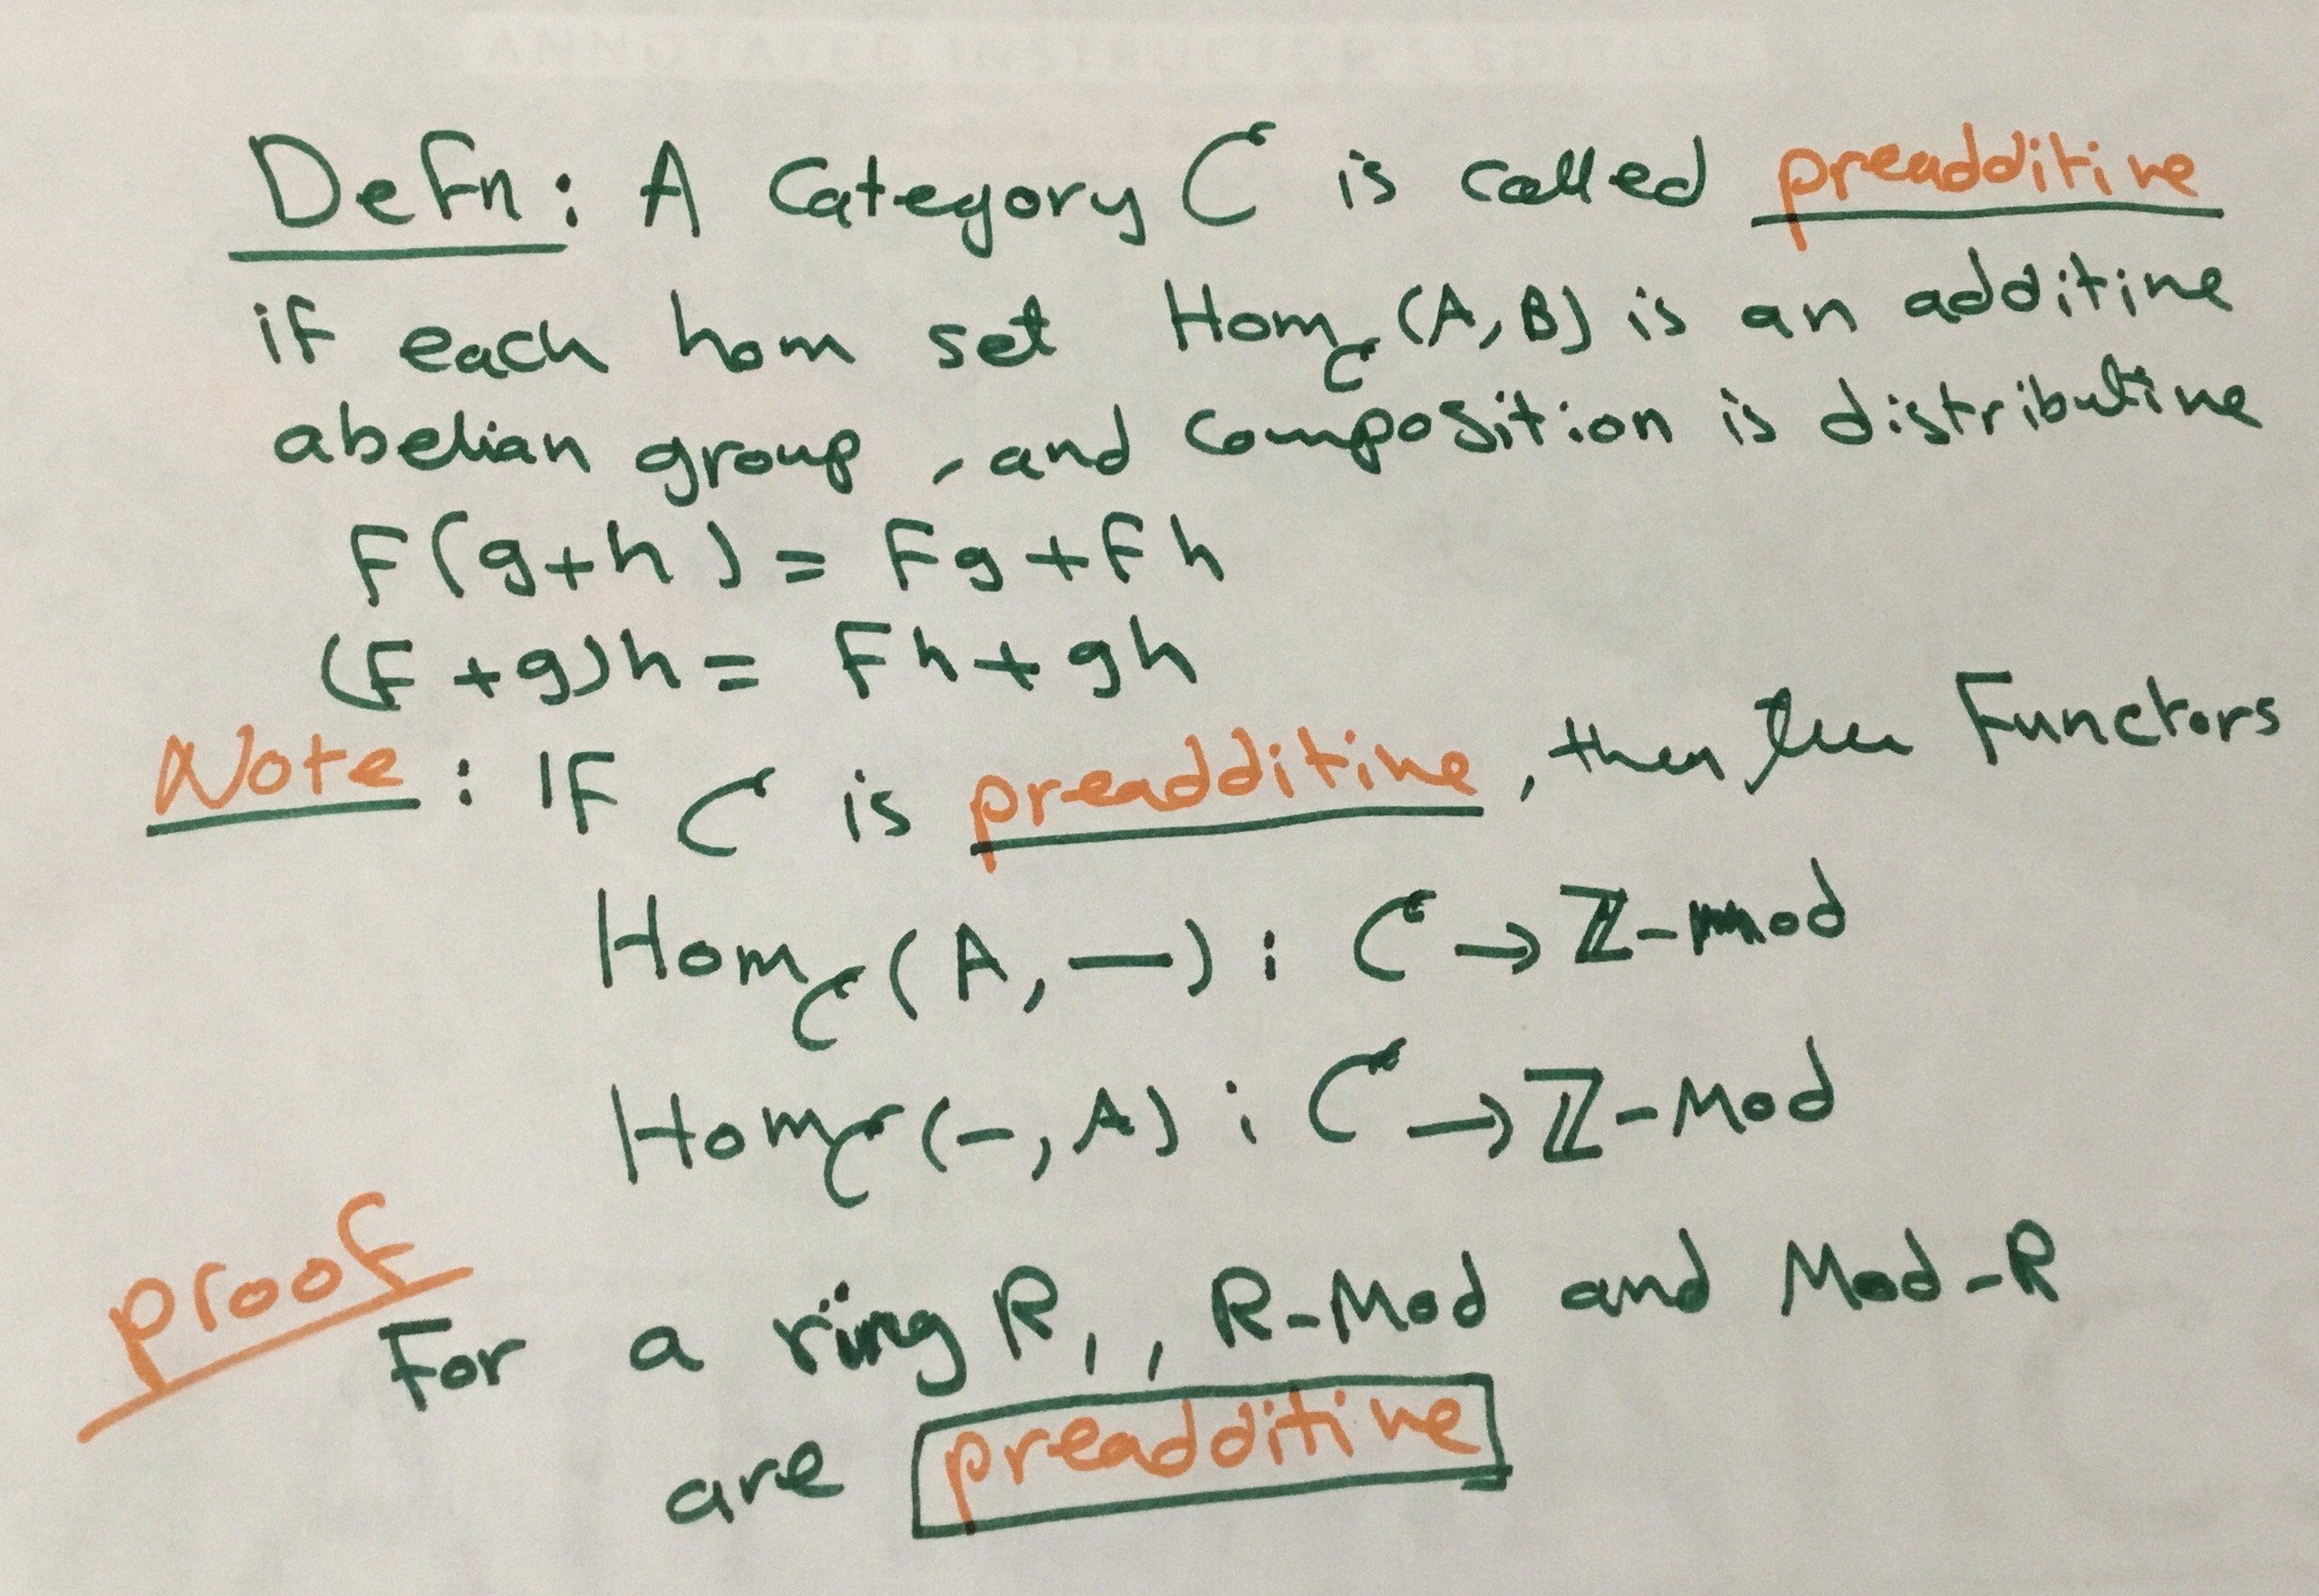 ANNOTATED INSTRUCTOR'S EDITION
Defn: A Category C is called preadditive
if each hom set Hom_C (A, B) is an additive
abelian group, and composition is distributive
F(g+h) = Fg + Fh
(F+g)h = Fh + gh
Note: IF C is preadditive, then the Functors
Hom_C (A, —) : C → ℤ-mod
Hom_C (-, A) : C → ℤ-Mod
proof
For a ring R,, R-Mod and Mod-R
are preadditive